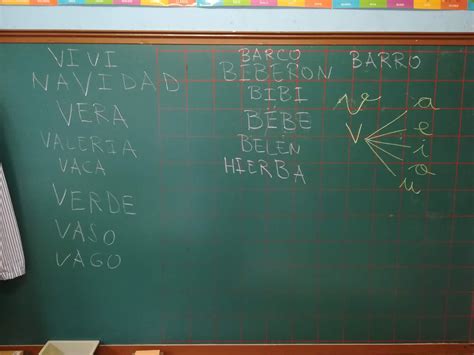 VIVI
NAVIDAD
VERA
VALERIA
VACA
VERDE
VASO
VAGO
BARCO
BIBERON
BIBI
BEBE
BELÉN
HIERBA
BARRO
v
V
a
e
i
o
u